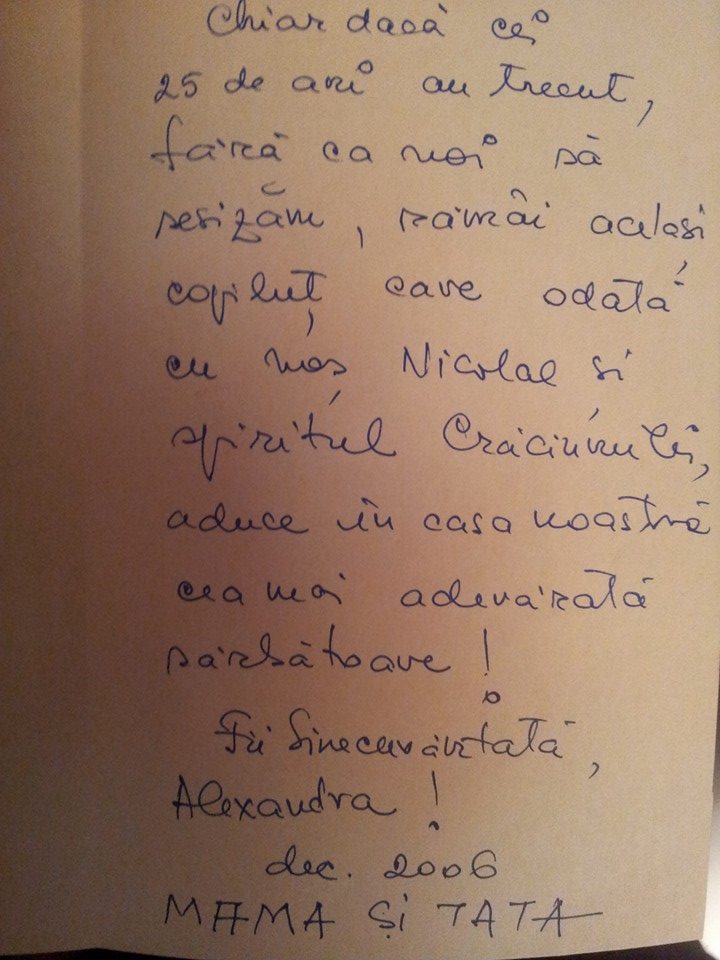 Chiar dacă cei
25 de ani au trecut,
fără ca noi să
sesizăm, rămâi același
copiluț care odată
cu moș Nicolae și
spiritul Crăciunului,
aduce în casa noastră
cea mai adevărată
sărbătoare!
Fii binecuvântată,
Alexandra!
dec. 2006
MAMA ȘI TATA